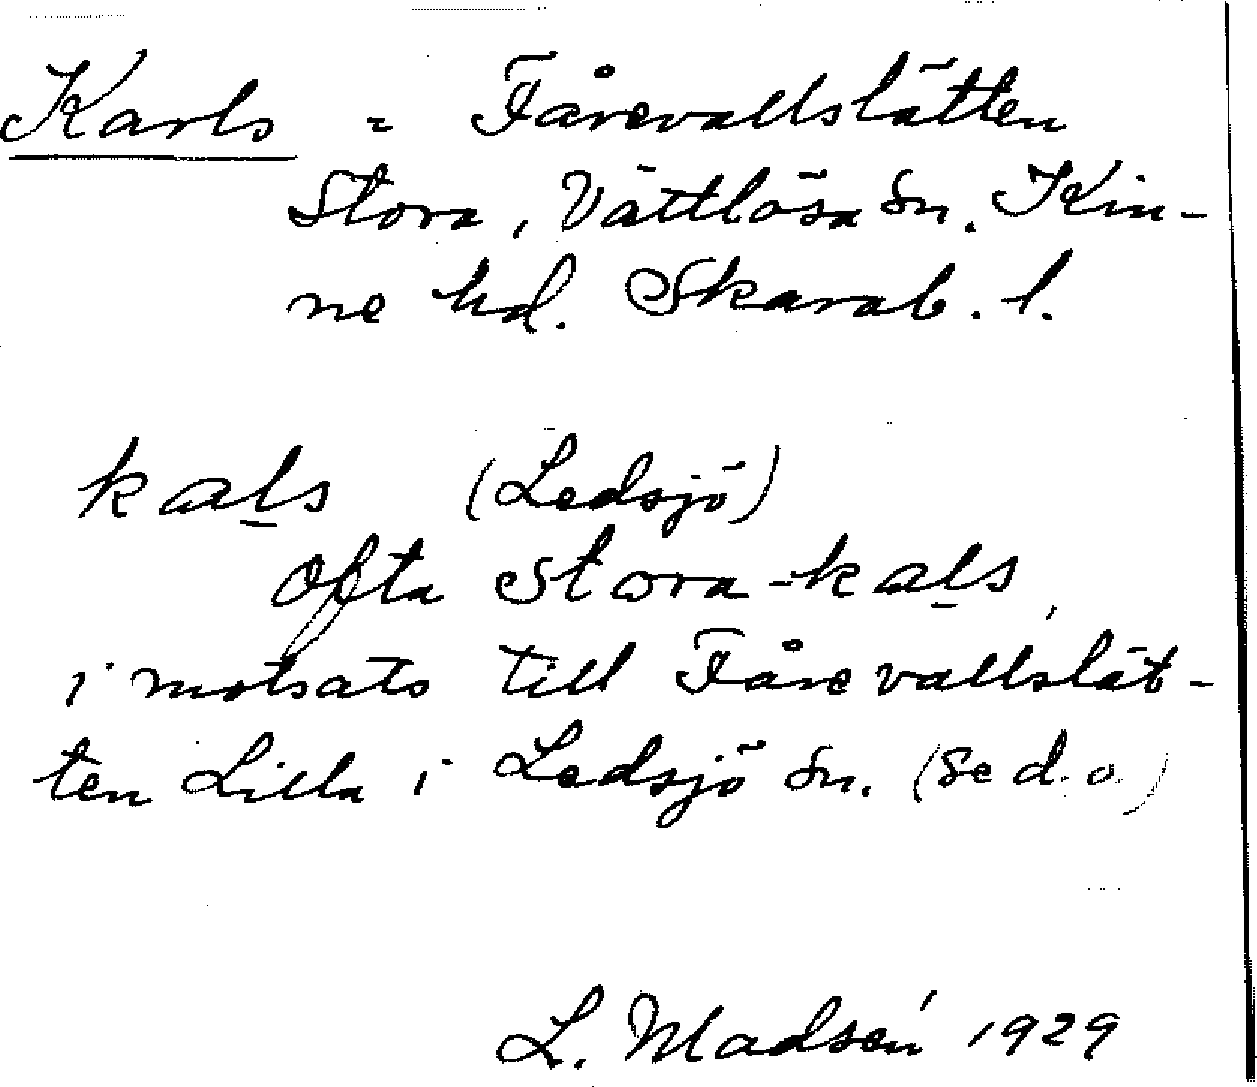 Karls = Fårevallslätten
Stora, Vättlösa Sn. Kin-
ne hd. Skarab. l.
kals (Ledsjö)
ofta Stora-kals,
i motsats till Fårevallslät-
ten Lilla i Ledsjö Sn. (Se d.o.)
L. Madsén 1929